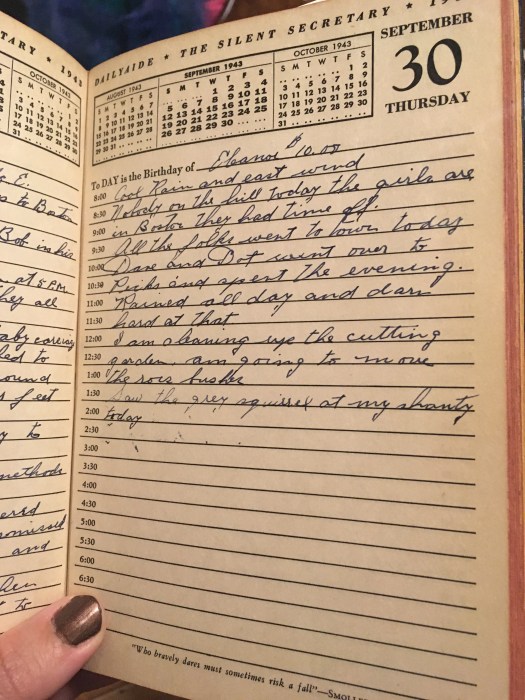 TARY ★ 194
OCTOBER 1943
E.
to Boston
Bob in his
at 5 PM
hey all
aby carriag
led to
ound
feet
to
methods
ered
omised
and
hen
to
DAILYAIDE ★ THE SILENT SECRETARY ★ 19
AUGUST 1943
S M T W T F S
1 2 3 4 5 6 7
8 9 10 11 12 13 14
15 16 17 18 19 20 21
22 23 24 25 26 27 28
29 30 31
SEPTEMBER 1943
S M T W T F S
1 2 3 4
5 6 7 8 9 10 11
12 13 14 15 16 17 18
19 20 21 22 23 24 25
26 27 28 29 30
OCTOBER 1943
S M T W T F S
1 2
3 4 5 6 7 8 9
10 11 12 13 14 15 16
17 18 19 20 21 22 23
24 25 26 27 28 29 30
31
SEPTEMBER
30
THURSDAY
To DAY is the Birthday of Eleanor $10.00
8:00 Cool Rain and east wind
8:30 Nobody on the hill today the girls are
9:00 in Boston they had time off.
9:30 All the folks went to town today
10:00 Dave and Dot went over to
10:30 Ricks and spent the evening.
11:00 Rained all day and darn
11:30 hard at that
12:00 I am cleaning up the cutting
12:30 garden. am going to move
1:00 the rose bushes
1:30 Saw the grey squirrel at my shanty
2:00 today
2:30
3:00
3:30
4:00
4:30
5:00
5:30
6:00
6:30
"Who bravely dares must sometimes risk a fall"—SMOLLE